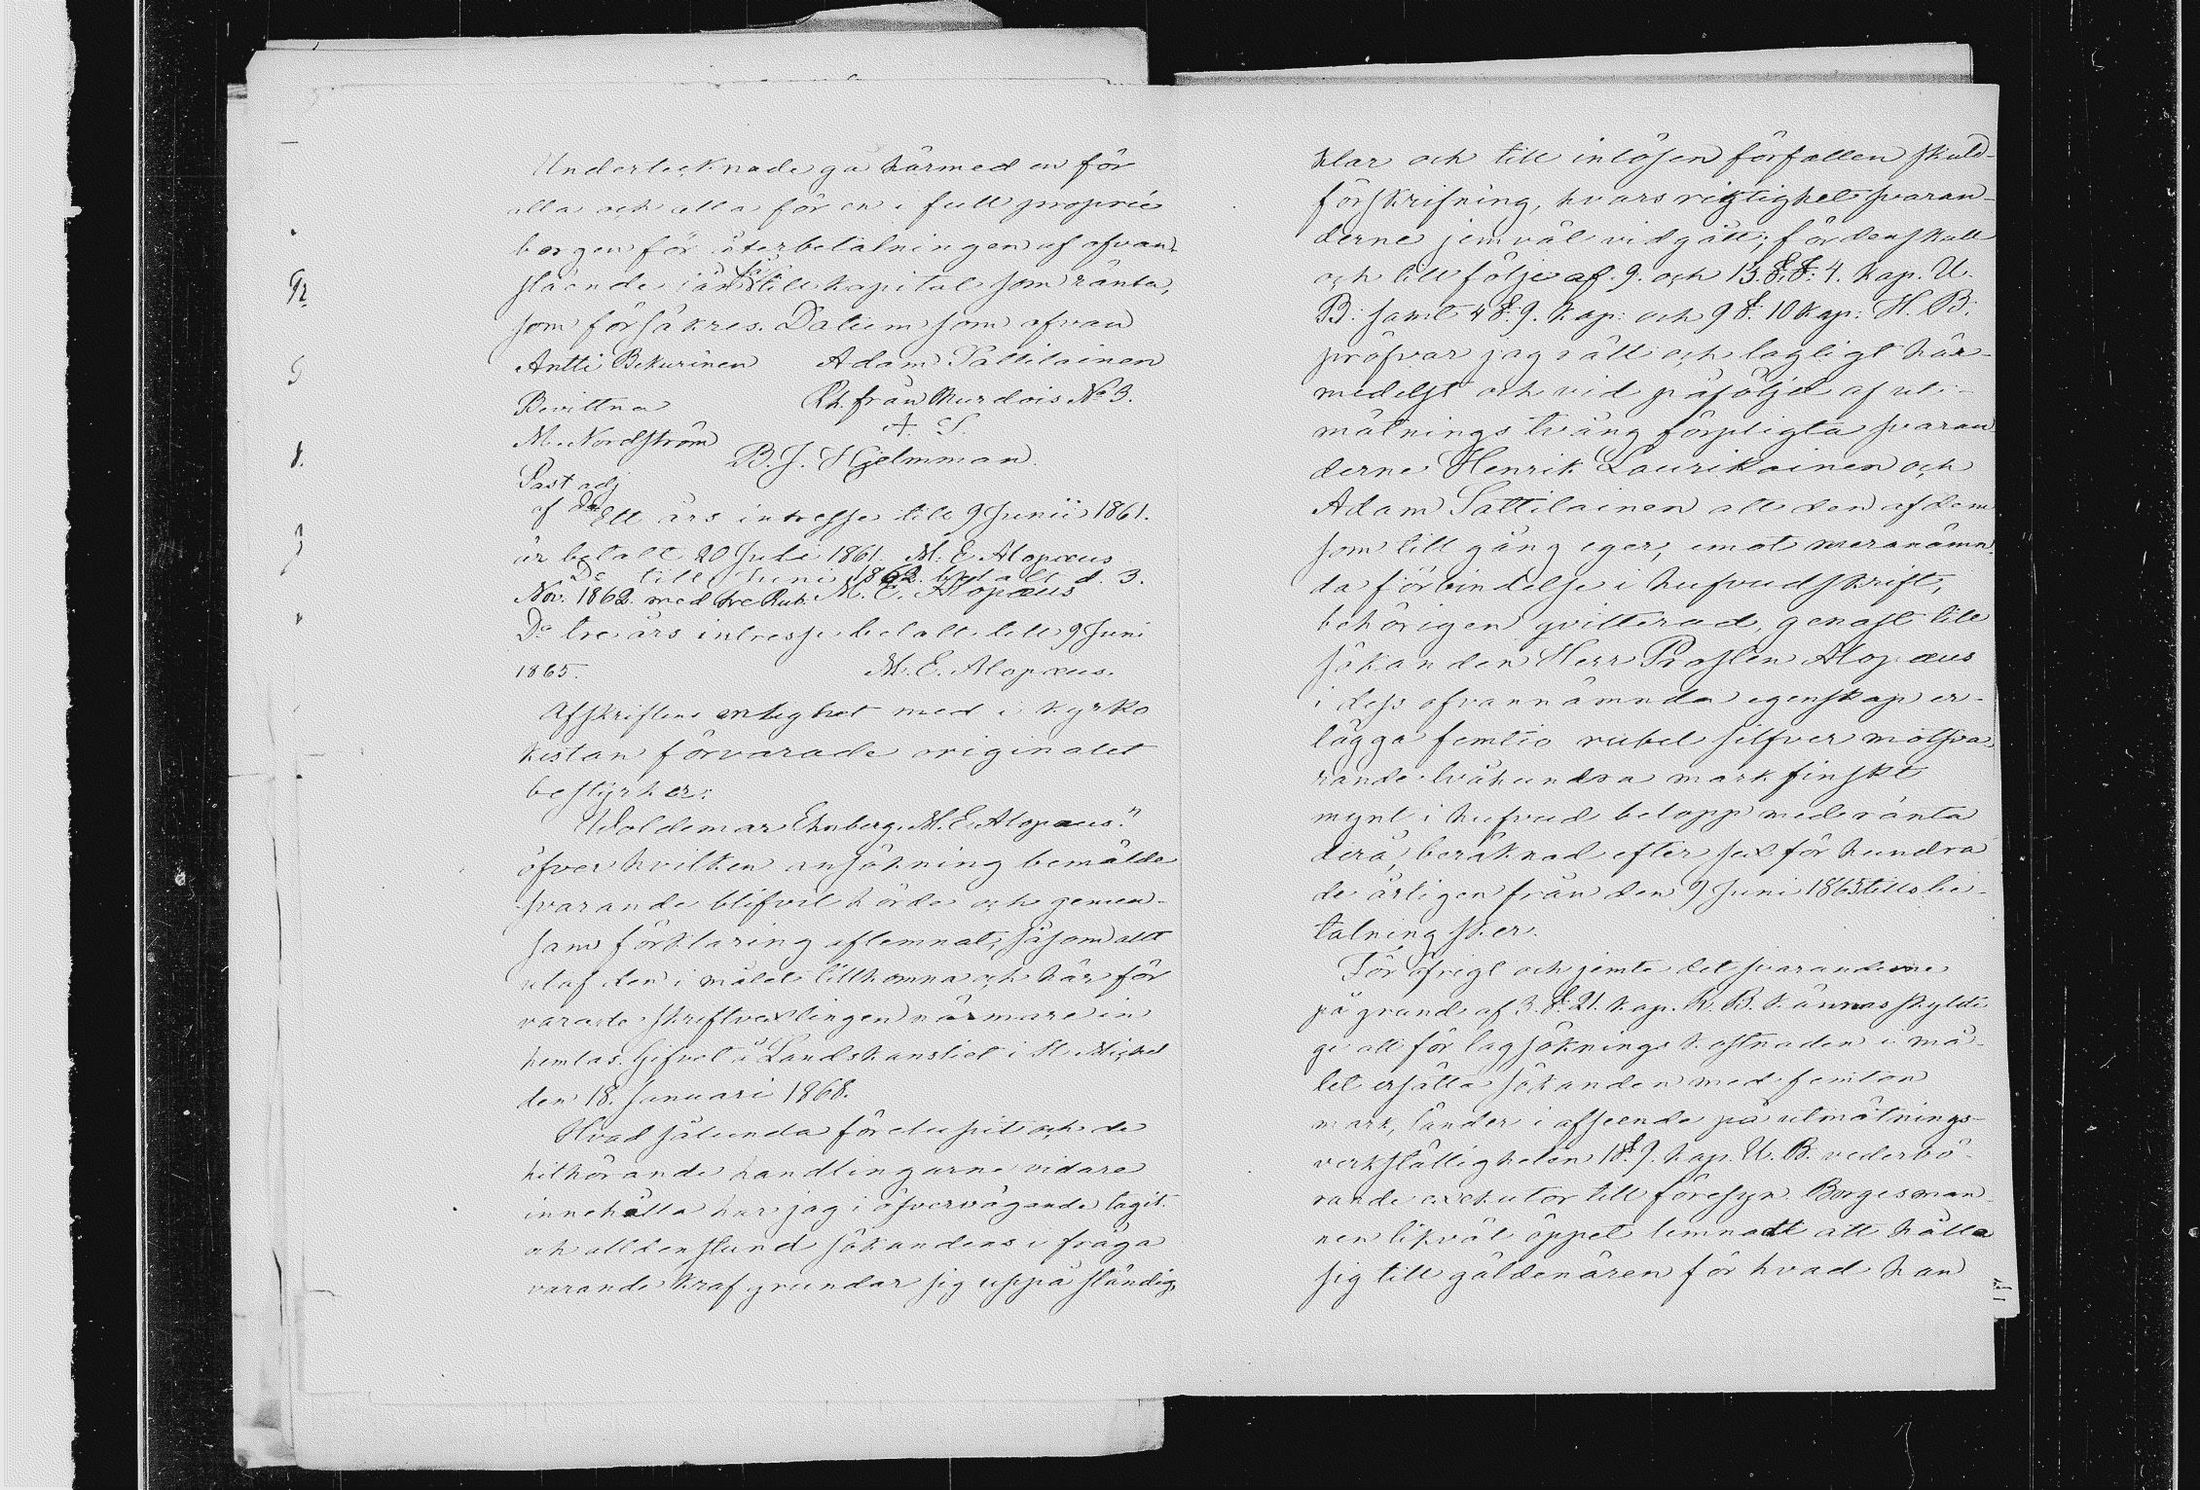 Undertecknade gå härmed en för
alla och alla för en i full proprie
borgen för återbetalningen af ofvan
stående lån så till kapital som ränta,
som försäkres. Datum som ofvan
Antti Bekurinen Adam Sattilainen
Bevittna Rh. från Kurdois No 3.
M. Nordström A. S.
Past adj B. J. Hjelmman.
af Do Ett års intresse till 9 Junii 1861.
är betalt 20 Juli 1861. M. E. Alopæus
Do till Juni 1862. betalt d. 3.
Nov. 1862. med tre Rub. M. E. Alopæus
Do tre års intresse betalt till 9 Juni
1865. M. E. Alopæus.
Afskriftens enlighet med i kyrko
kistan förvarade originalet
bestyrker:
Woldemar Ehnberg. M. E. Alopæus."
öfver hvilken ansökning bemälde
svarande blifvit hörde och gemen-
sam förklaring aflemnat; såsom allt
utaf den i målet tillkomna och här för
varade skriftvexlingen närmare in
hemtas. Gifvet å Landskansliet i St. Michel
den 18. Januari 1868.
Hvad sålunda förelupit och de
hithörande handlingarne vidare
innehålla har jag i öfvervägande tagit
och alldenstund sökandens i fråga
varande kraf grundar sig uppå ständig,
klar och till inlösen förfallen skuld-
förskrifning, hvars rigtighet svaran-
derne jemväl vidgått; för denskull
och till följe af 9. och 13. §.§. 4. kap. U.
B. samt 4 §. 9. kap: och 9 §. 10 kap: H. B.
pröfvar jag rätt och lagligt här-
medelst och vid påföljd af ut-
mätnings tvång förpligta svaran
derne Henrik Laurikainen och
Adam Sattilainen att den af dem
som till gång eger, emot meranämn-
da förbindelse i hufvudskrift,
behörigen qvitterad, genast till
sökanden Herr Prosten Alopæus
i dess ofvannämnda egenskap er-
lägga femtio rubel silfver motsva-
rande tvåhundra mark finskt
mynt i hufvud belopp med ränta
derå, beräknad efter sex för hundra
de årligen från den 9 Juni 1865 tills be-
talning sker.
För öfrigt och jemte det svaranderne
på grund af 3. §. 21. kap. R. B. kännas skyldi
ge att för lagsökningskostnaden i må-
let ersätta sökanden med femton
mark, länder i afseende på utmätnings-
verkställigheten 1 §. 9. kap. U. B. vederbö-
rande exekutor till föresyn. Borgesman-
nen likväl öppet lemnadt att hålla
sig till gäldenären för hvad han